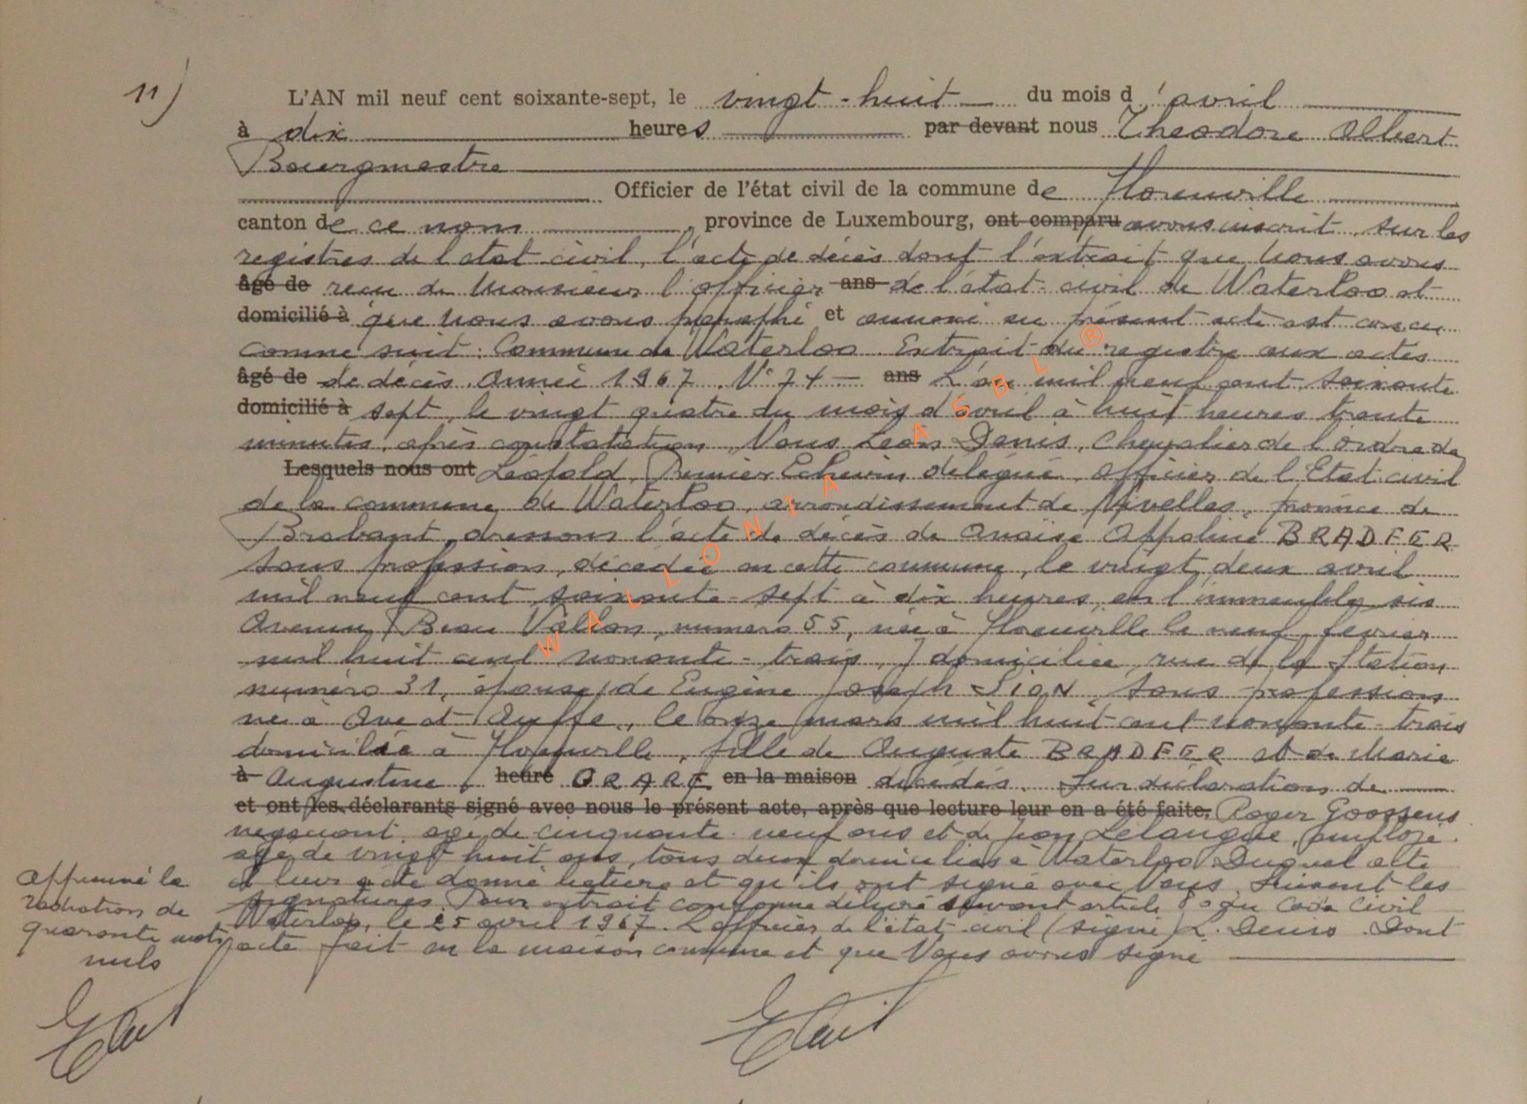 11)
L'AN mil neuf cent soixante-sept, le vingt-huit du mois d'avril
à dix heures par devant nous Théodore Albert
Bourgmestre
Officier de l'état civil de la commune de Florenville
canton de ce nom, province de Luxembourg, ont comparu avons inscrit sur les
registres de l'état civil, l'acte de décès dont l'extrait que nous avons
âgé de reçu de Monsieur l'officier ans de l'état-civil de Waterloo et
domicilié à que nous avons paraphé et annexé au présent acte est conçu
comme suit : Commune de Waterloo. Extrait du registre aux actes
âgé de de décès. Année 1967. N° 74 — ans L'an mil neuf cent soixante
domicilié à sept, le vingt quatre du mois d'avril à huit heures trente
minutes, après constatation, Nous Léon Denis, Chevalier de l'ordre de
Lesquels nous ont Léopold, Premier Echevin délégué, officier de l'Etat-civil
de la commune de Waterloo, arrondissement de Nivelles, province de
Brabant, dressons l'acte de décès de Anaïse Appoline BRADFER
sans profession, décédée en cette commune, le vingt deux avril
mil neuf cent soixante-sept à dix heures, en l'immeuble sis
Avenue Beau Vallon, numéro 55, née à Florenville le neuf février
mil huit cent nonante-trois, domiciliée rue de la Station
numéro 31, épouse de Eugène Joseph SION sans profession
né à Ave et Auffe, le onze mars mil huit cent nonante-trois
domicilié à Florenville, fille de Auguste BRADFER et de Marie
à Augustine, heure GRARE en la maison décédés. Sur déclaration de
et ont les déclarants signé avec nous le présent acte, après que lecture leur en a été faite. Roger Goossens
négociant âgé de cinquante-neuf ans et de Jean Lelangue, employé
âgé de vingt huit ans, tous deux domiciliés à Waterloo Duquel acte
il leur a été donné lecture et qu'ils ont signé avec Nous. Suivent les
signatures. Pour extrait conforme délivré suivant article 80 du Code Civil
Waterloo, le 25 avril 1967. L'officier de l'état-civil (signé) L. Denis. Dont
acte fait en la maison commune et que Nous avons signé
Approuvé la
radiation de
quarante mots
nuls
WALLONIA ASBL ®